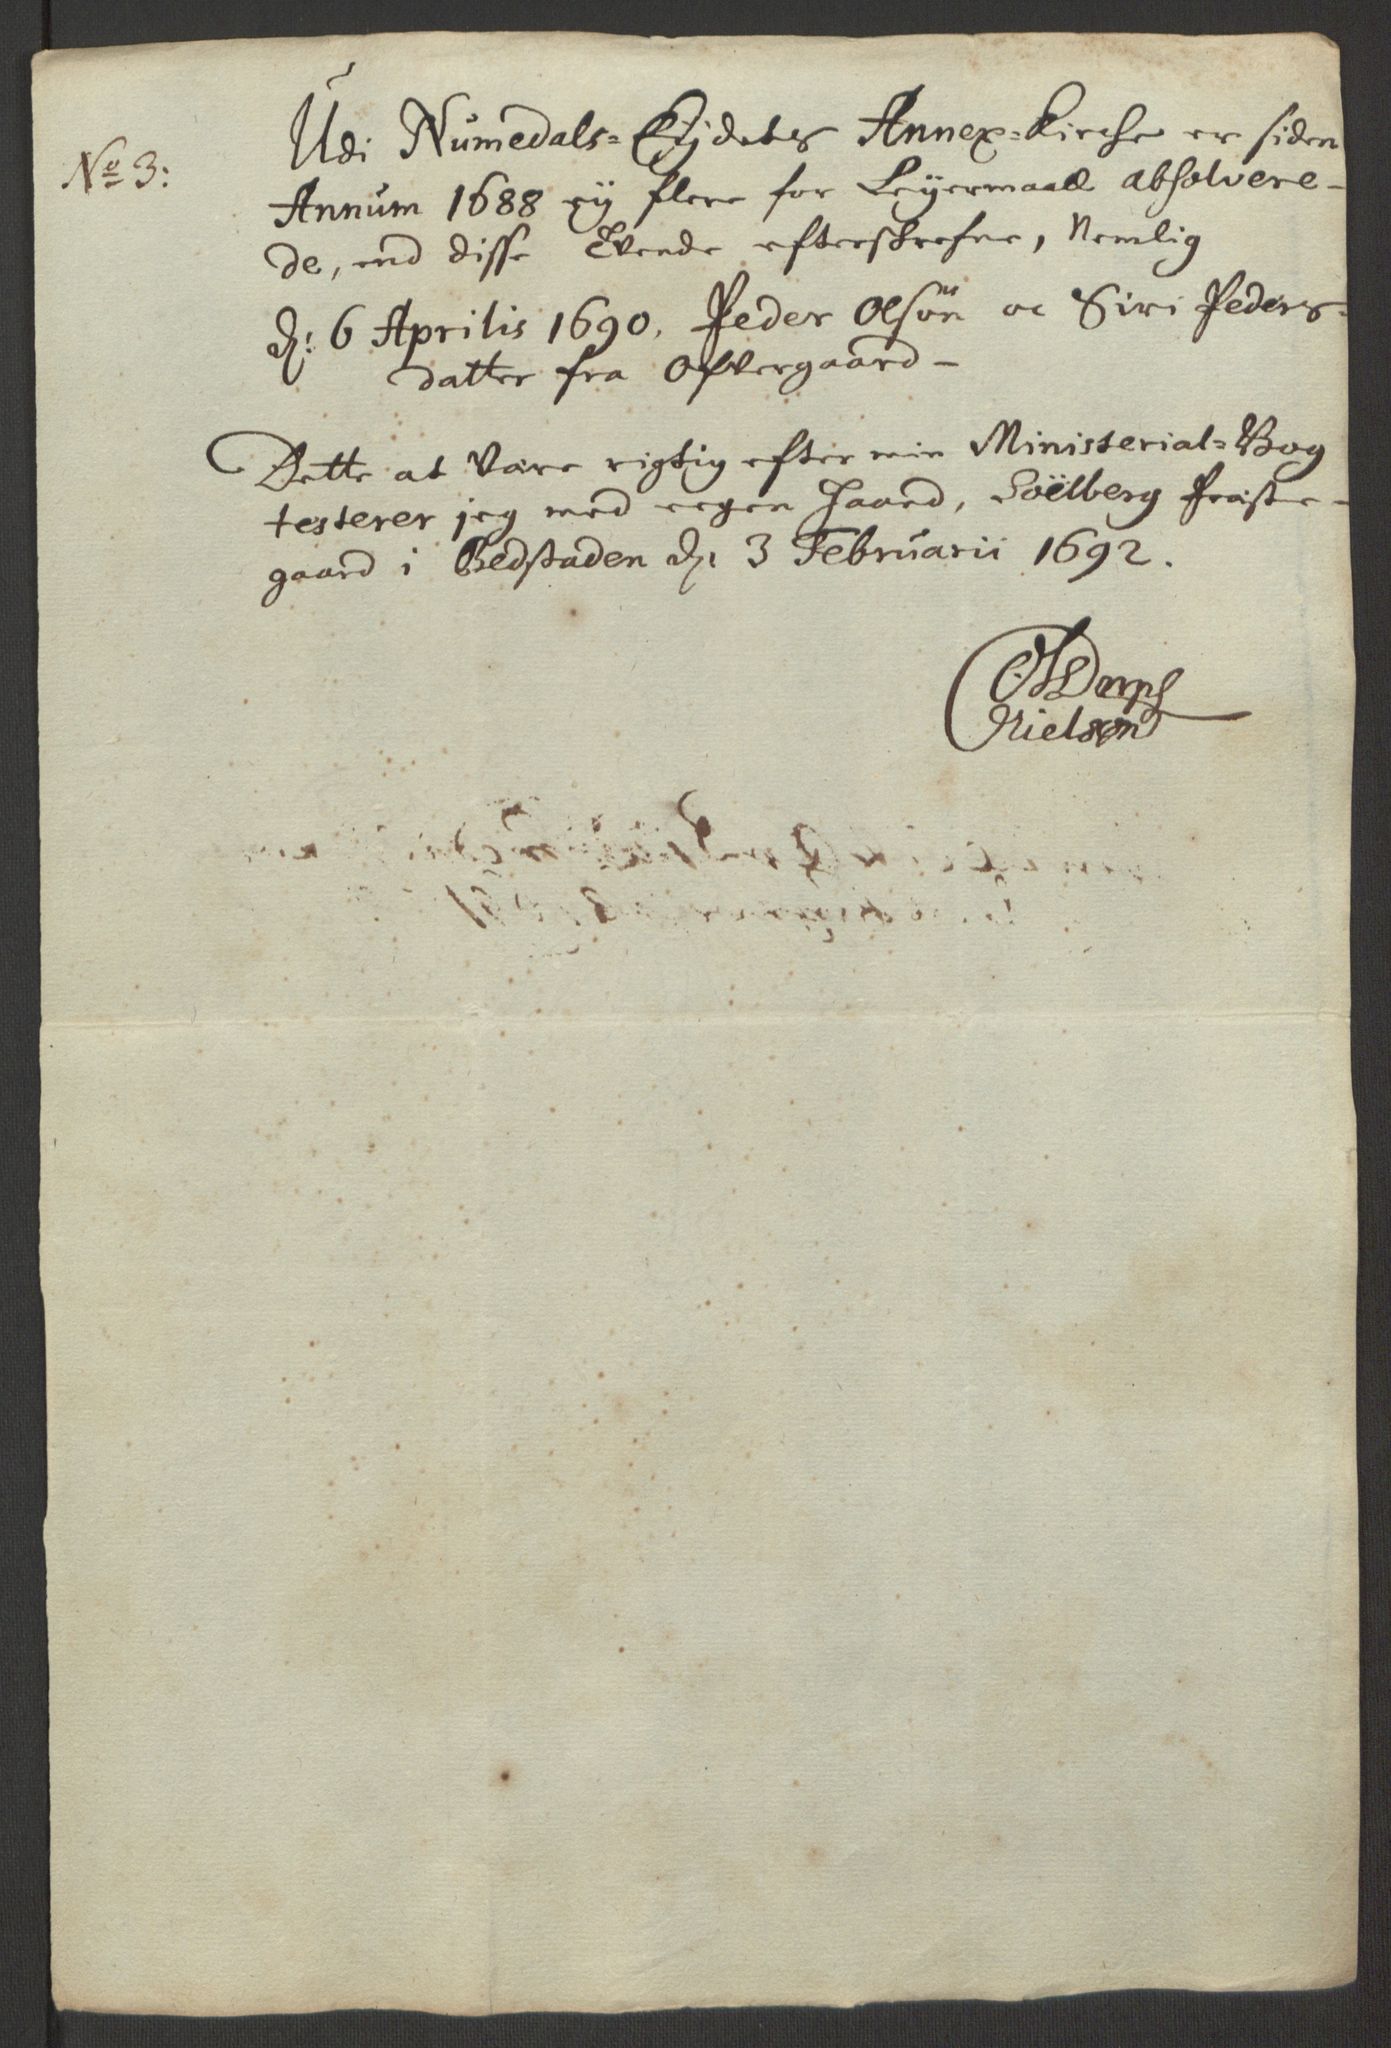 No 3:
Udi Numedals-Eydets Annex-Kirche er siden
Annum 1688 ey flere for Leyermaall absolvere-
de, end disse tvende efterskrefne, Nemlig
d: 6 Aprilis 1690. Peder Olsøn oc Siri Peders-
datter fra Ofvergaard -
Dette at være rigtig efter min Ministerial-Bog
testerer jeg med eegen Haand, Soëlberg Præste-
gaard i Bedstaden d: 3 Februarii 1692.
Dorph
Nielsøn